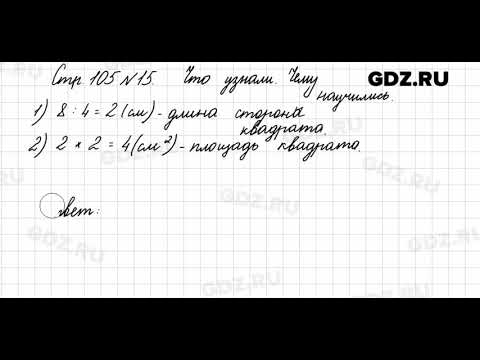 Стр. 105 № 15. Что узнали. Чему
научились.
GDZ.RU
1) 8 : 4 = 2 (см) - длина стороны
квадрата.
2) 2 × 2 = 4 (см²) - площадь квадрата.
Ответ:
GDZ.RU
GDZ.RU
GDZ.RU
GDZ.RU
GDZ.RU
GDZ.RU